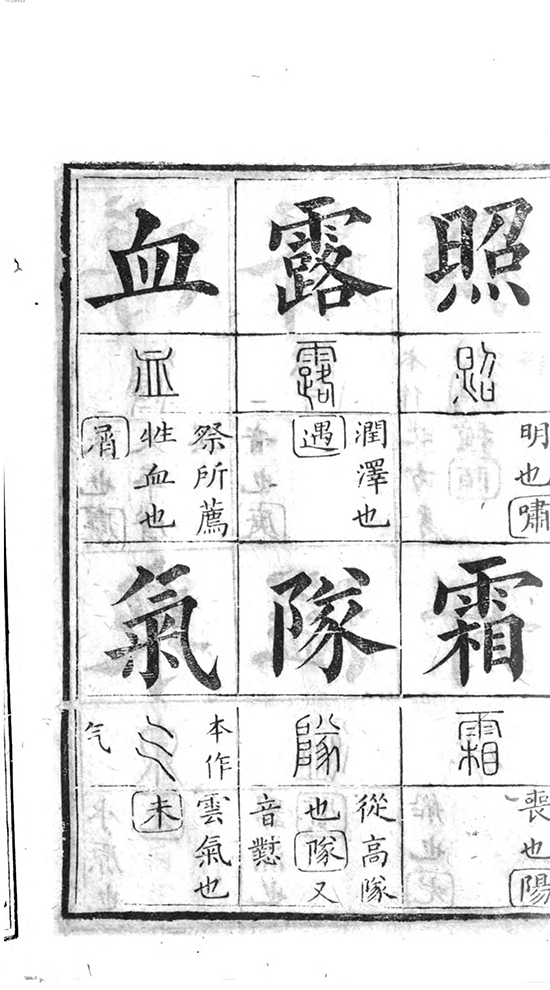 照
照
明也嘯
霜
霜
喪也陽
露
露
潤澤也
遇
隊
隊
從高隊
也隊又
音懟
血
血
祭所薦
牲血也
屑
氣
本作
气
气
雲氣也
未